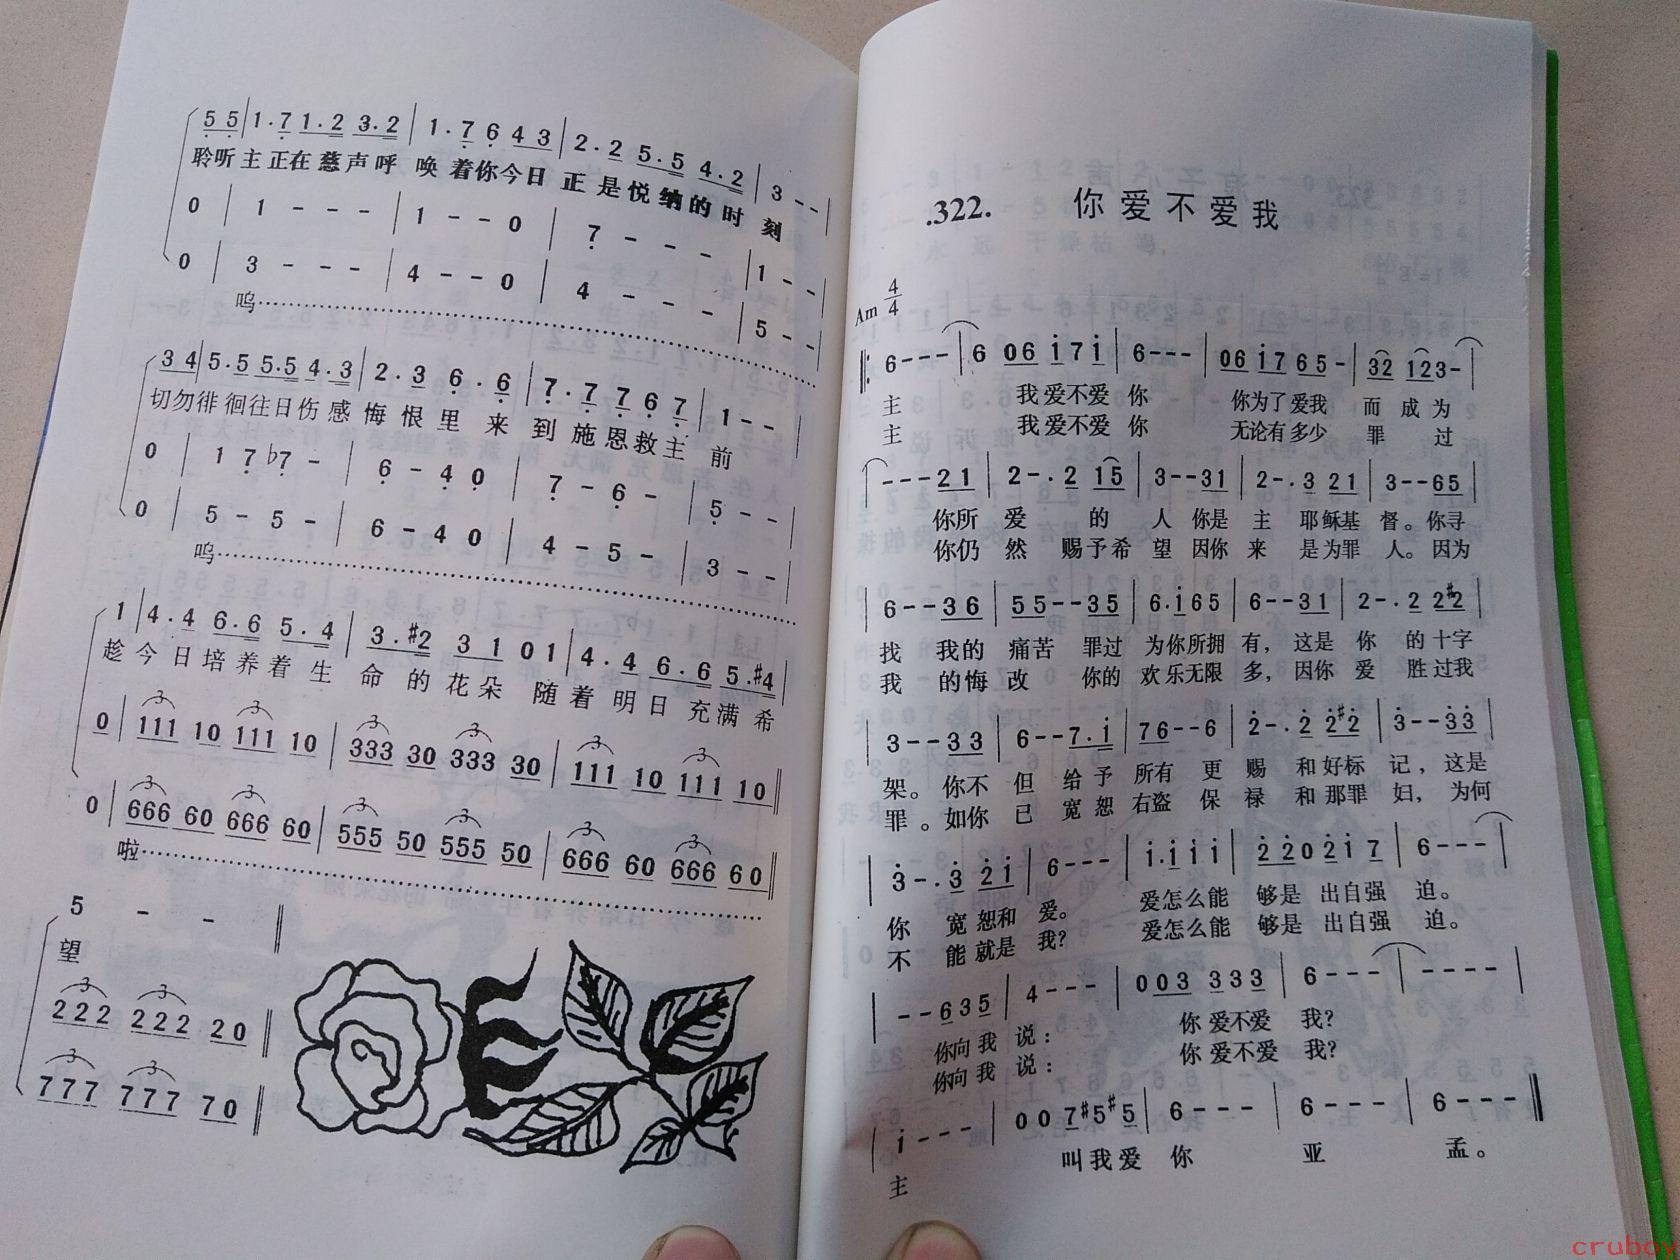 5 5 | 1 · 7 1 · 2 3 · 2 | 1 · 7 6 4 3 | 2 · 2 5 · 5 4 · 2 | 3 - - |
聆听主正在慈声呼唤着你今日正是悦纳的时刻
0 | 1 - - - | 1 - - 0 | 7 - - - | 1 - - |
0 | 3 - - - | 4 - - 0 | 4 - - - | 5 - - |
呜
3 4 | 5 · 5 5 · 5 4 · 3 | 2 · 3 6 · 6 | 7 · 7 7 6 7 | 1 - - |
切勿徘徊往日伤感悔恨里来到施恩救主前
0 | 1 7 ♭7 - | 6 - 4 0 | 7 - 6 - | 5 - - |
0 | 5 - 5 - | 6 - 4 0 | 4 - 5 - | 3 - - |
呜
1 | 4 · 4 6 · 6 5 · 4 | 3 · #2 3 1 0 1 | 4 · 4 6 · 6 5 · #4 |
趁今日培养着生命的花朵随着明日充满希
0 | 111 10 111 10 | 333 30 333 30 | 111 10 111 10 ||
0 | 666 60 666 60 | 555 50 555 50 | 666 60 666 60 ||
啦
5 - - ||
望
222 222 20 ||
777 777 70 ||
.322. 你爱不爱我
Am 4/4
6 - - - | 6 06 i 7 i | 6 - - - | 06 i 7 65 - | 32 123 - |
主 我爱不爱你 你为了爱我 而成为
主 我爱不爱你 无论有多少 罪过
- - - 21 | 2 - · 2 15 | 3 - - 31 | 2 - · 3 21 | 3 - - 65 |
你所爱的人你是主耶稣基督。你寻
你仍然赐予希望因你来是为罪人。因为
6 - - 36 | 55 - - 35 | 6 · i 65 | 6 - - 31 | 2 - · 2 2#2 |
找我的痛苦罪过为你所拥有，这是你的十字
我的悔改你的欢乐无限多，因你爱胜过我
3 - - 33 | 6 - - 7 · i | 76 - - 6 | 2 - · 2 2#2 | 3 - - 33 |
架。你不但给予所有更赐和好标记，这是
罪。如你已宽恕右盗保禄和那罪妇，为何
3 - · 3 2i | 6 - - - | i · i i i | 2 2 0 2 i 7 | 6 - - - |
你宽恕和爱。 爱怎么能够是出自强迫。
不能就是我？ 爱怎么能够是出自强迫。
| - - 6 3 5 | 4 - - - | 0 03 3 33 | 6 - - - | - - - - |
你向我说： 你爱不爱我？
你向我说： 你爱不爱我？
| i - - - | 0 0 7 #5 #5 | 6 - - - | 6 - - - | 6 - - - ||
主 叫我爱你 亚孟。
cruboy